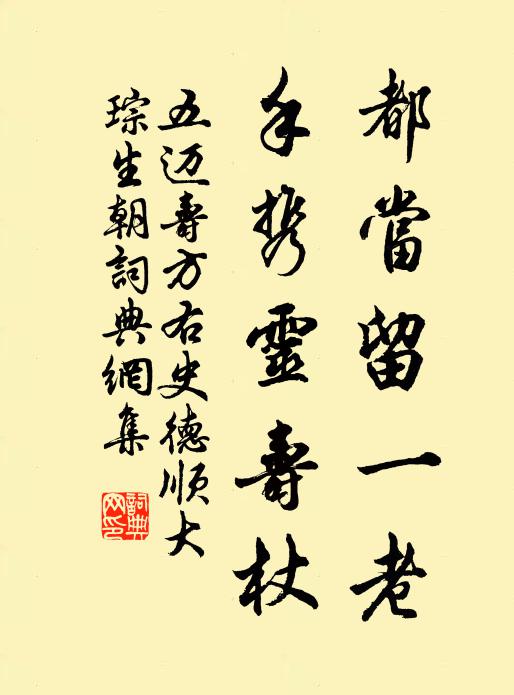 都當留一老
手携靈壽杖
五迈壽方右史德順大
琮生朝詞典網集
詞典
网印